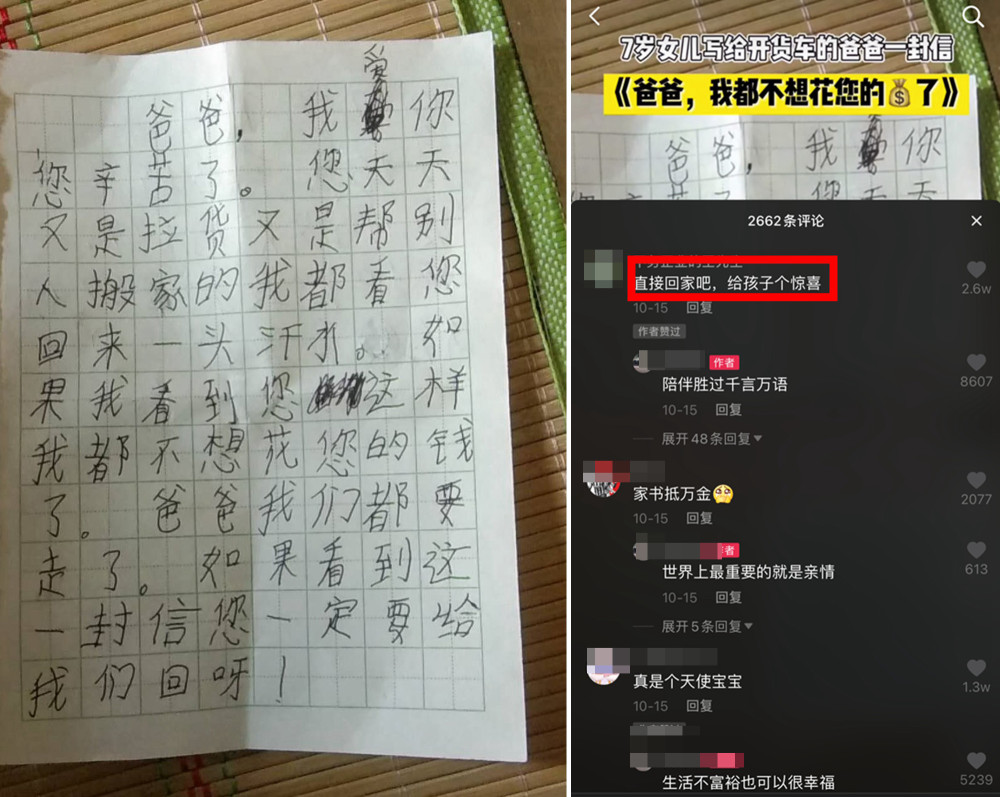 爸爸，我爱你
您辛苦了。您天天
又是拉货又是帮别
人搬家的我都看您
回来一头汗水。如
果我看到您这样
我都不想花您的钱
了。爸爸我们都要
走了。如果看到这
一封信您一定要给
我们回呀！
7岁女儿写给开货车的爸爸一封信
《爸爸，我都不想花您的💰了》
爸爸，我你
2662条评论
直接回家吧，给孩子个惊喜
2.6w
10-15 回复
作者赞过
作者
陪伴胜过千言万语
8607
10-15 回复
展开48条回复
家书抵万金
2077
10-15 回复
世界上最重要的就是亲情
613
10-15 回复
展开5条回复
真是个天使宝宝
1.3w
10-15 回复
生活不富裕也可以很幸福
5239